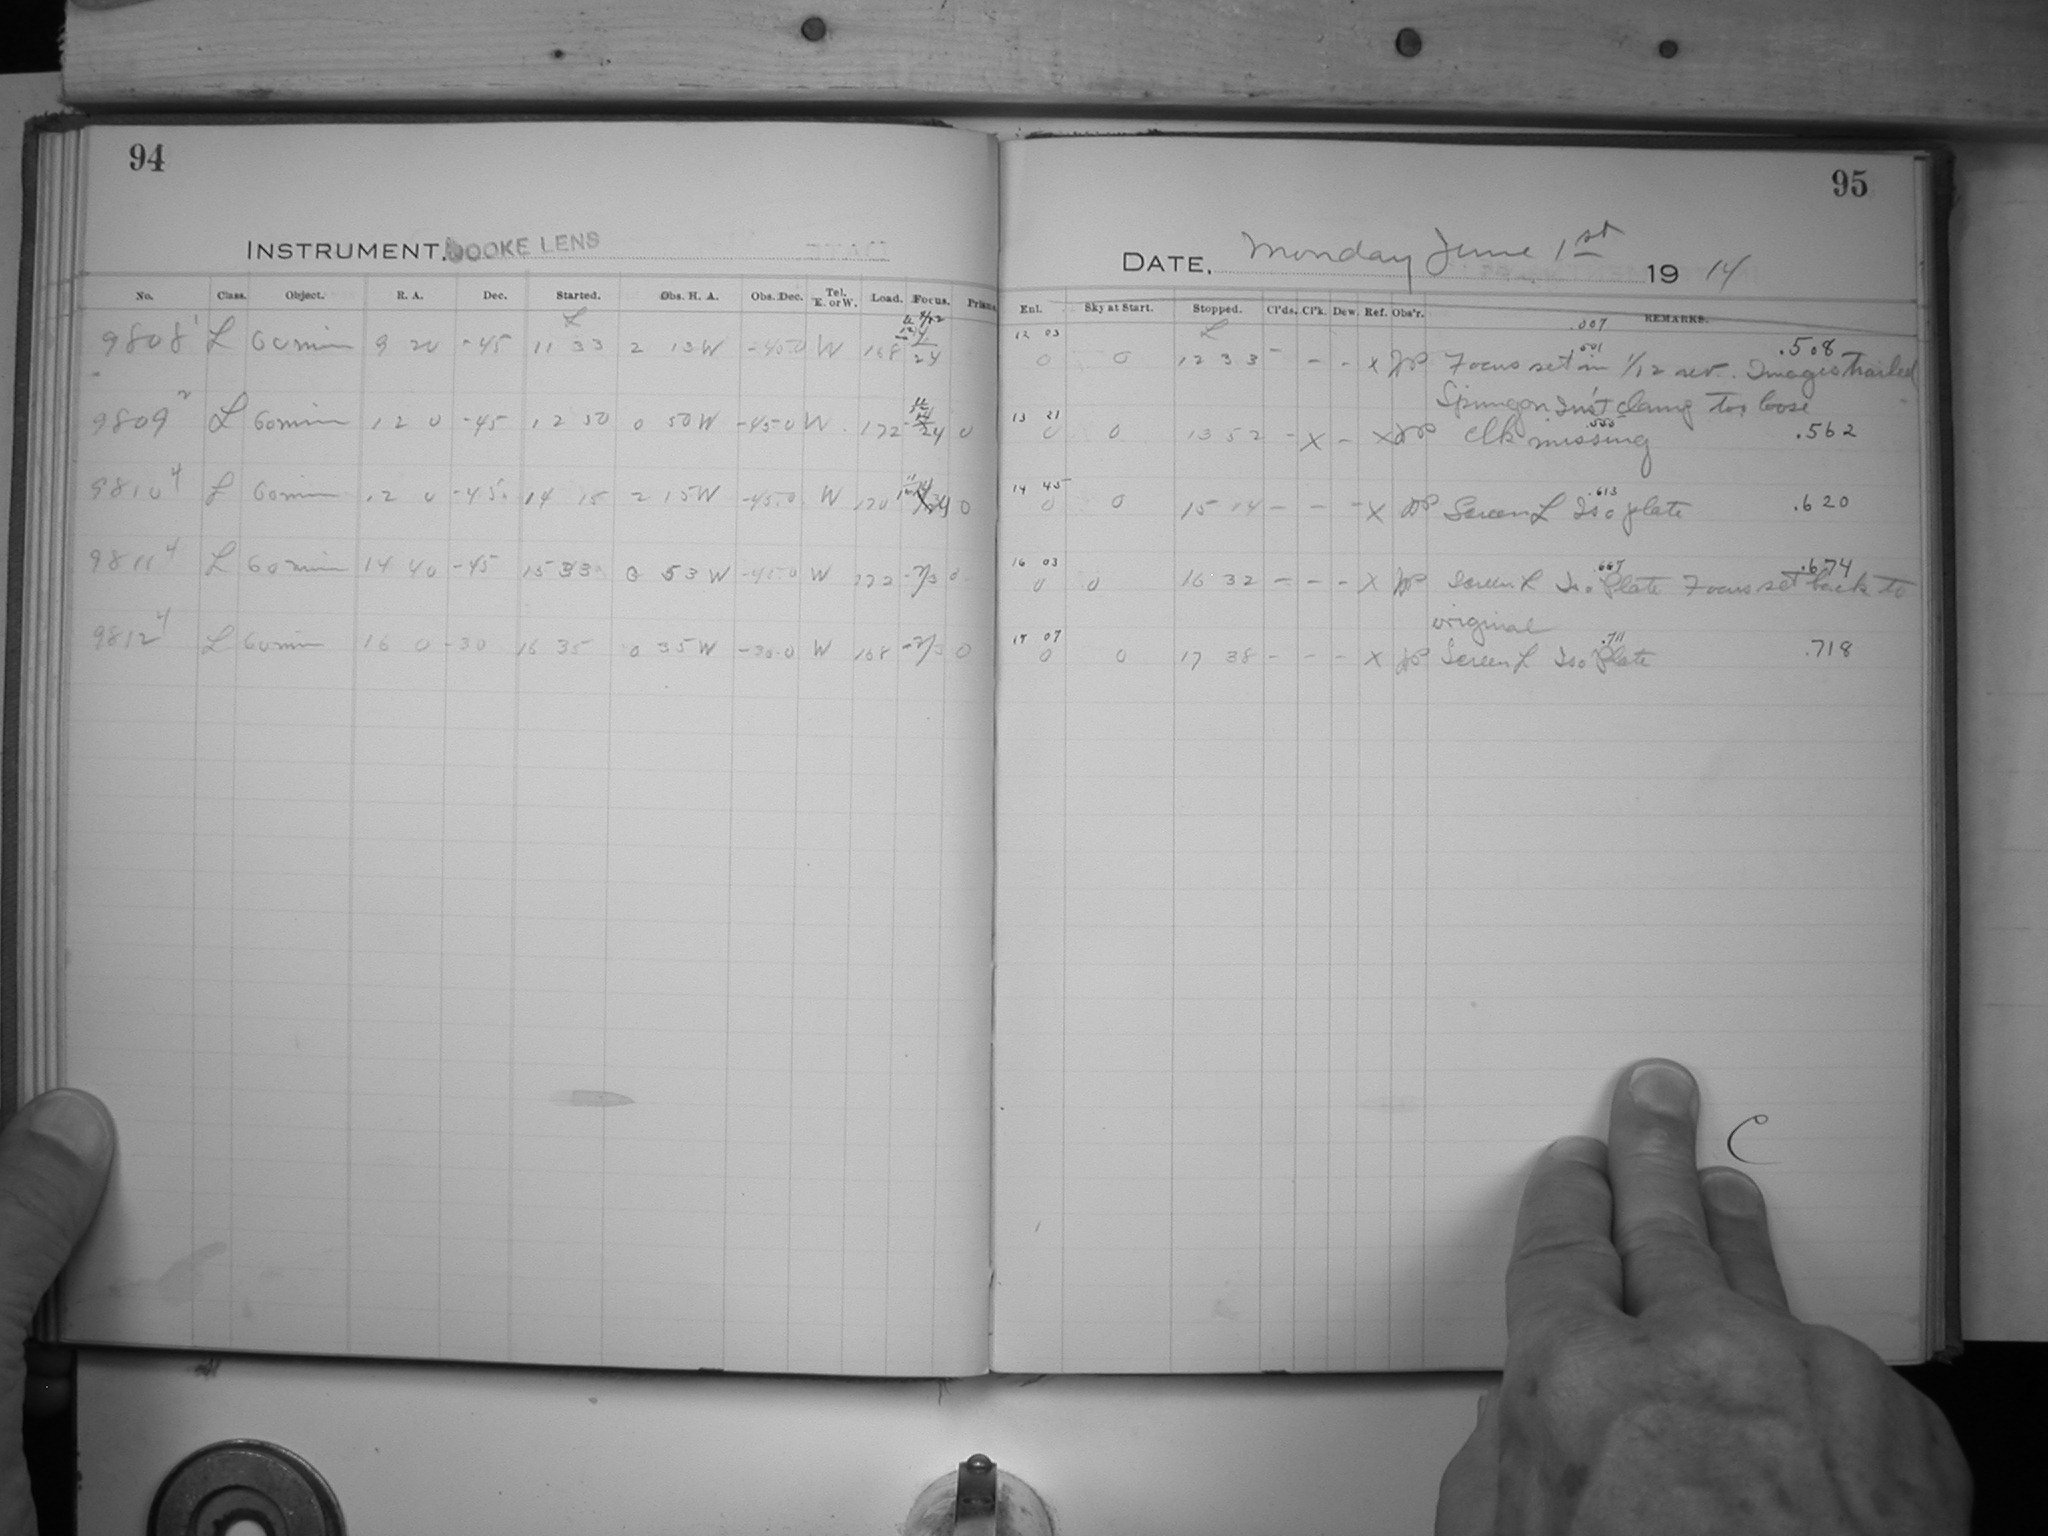 94
95
INSTRUMENT. COOKE LENS
DATE. Monday June 1st 1914
No. Class. Object. R. A. Dec. Started. Obs. H. A. Obs. Dec. Tel. E. or W. Load. Focus. Prism
Enl. Sky at Start. Stopped. Cl'ds. Cl'k. Dew. Ref. Obs'r. REMARKS.
9808 1 L 60 min 9 20 -45 11 33 2 13 W -45.0 W 168 24
12 03 0 0 12 33 - - - x .007 .501 .508
Focus set in 1/12 rev. Images trailed
Spring on Inst clamp too loose
9809 2 L 60 min 12 0 -45 12 50 0 50 W -45.0 W 172 24 0
13 21 0 0 13 52 - X - X Clk missing .562
9810 4 L 60 min 12 0 -45 14 15 2 15 W -45.0 W 170 0
14 45 0 0 15 14 - - - X Screen L Iso plate .613 .620
9811 4 L 60 min 14 40 -45 15 33 0 53 W -45.0 W 172 -2/3 0
16 03 0 0 16 32 - - - X Screen L Iso Plate Focus set back to .667 .674
original
9812 4 L 60 min 16 0 -30 16 35 0 35 W -30.0 W 168 -2/3 0
17 07 0 0 17 38 - - - X Screen L Iso Plate .711 .718
C